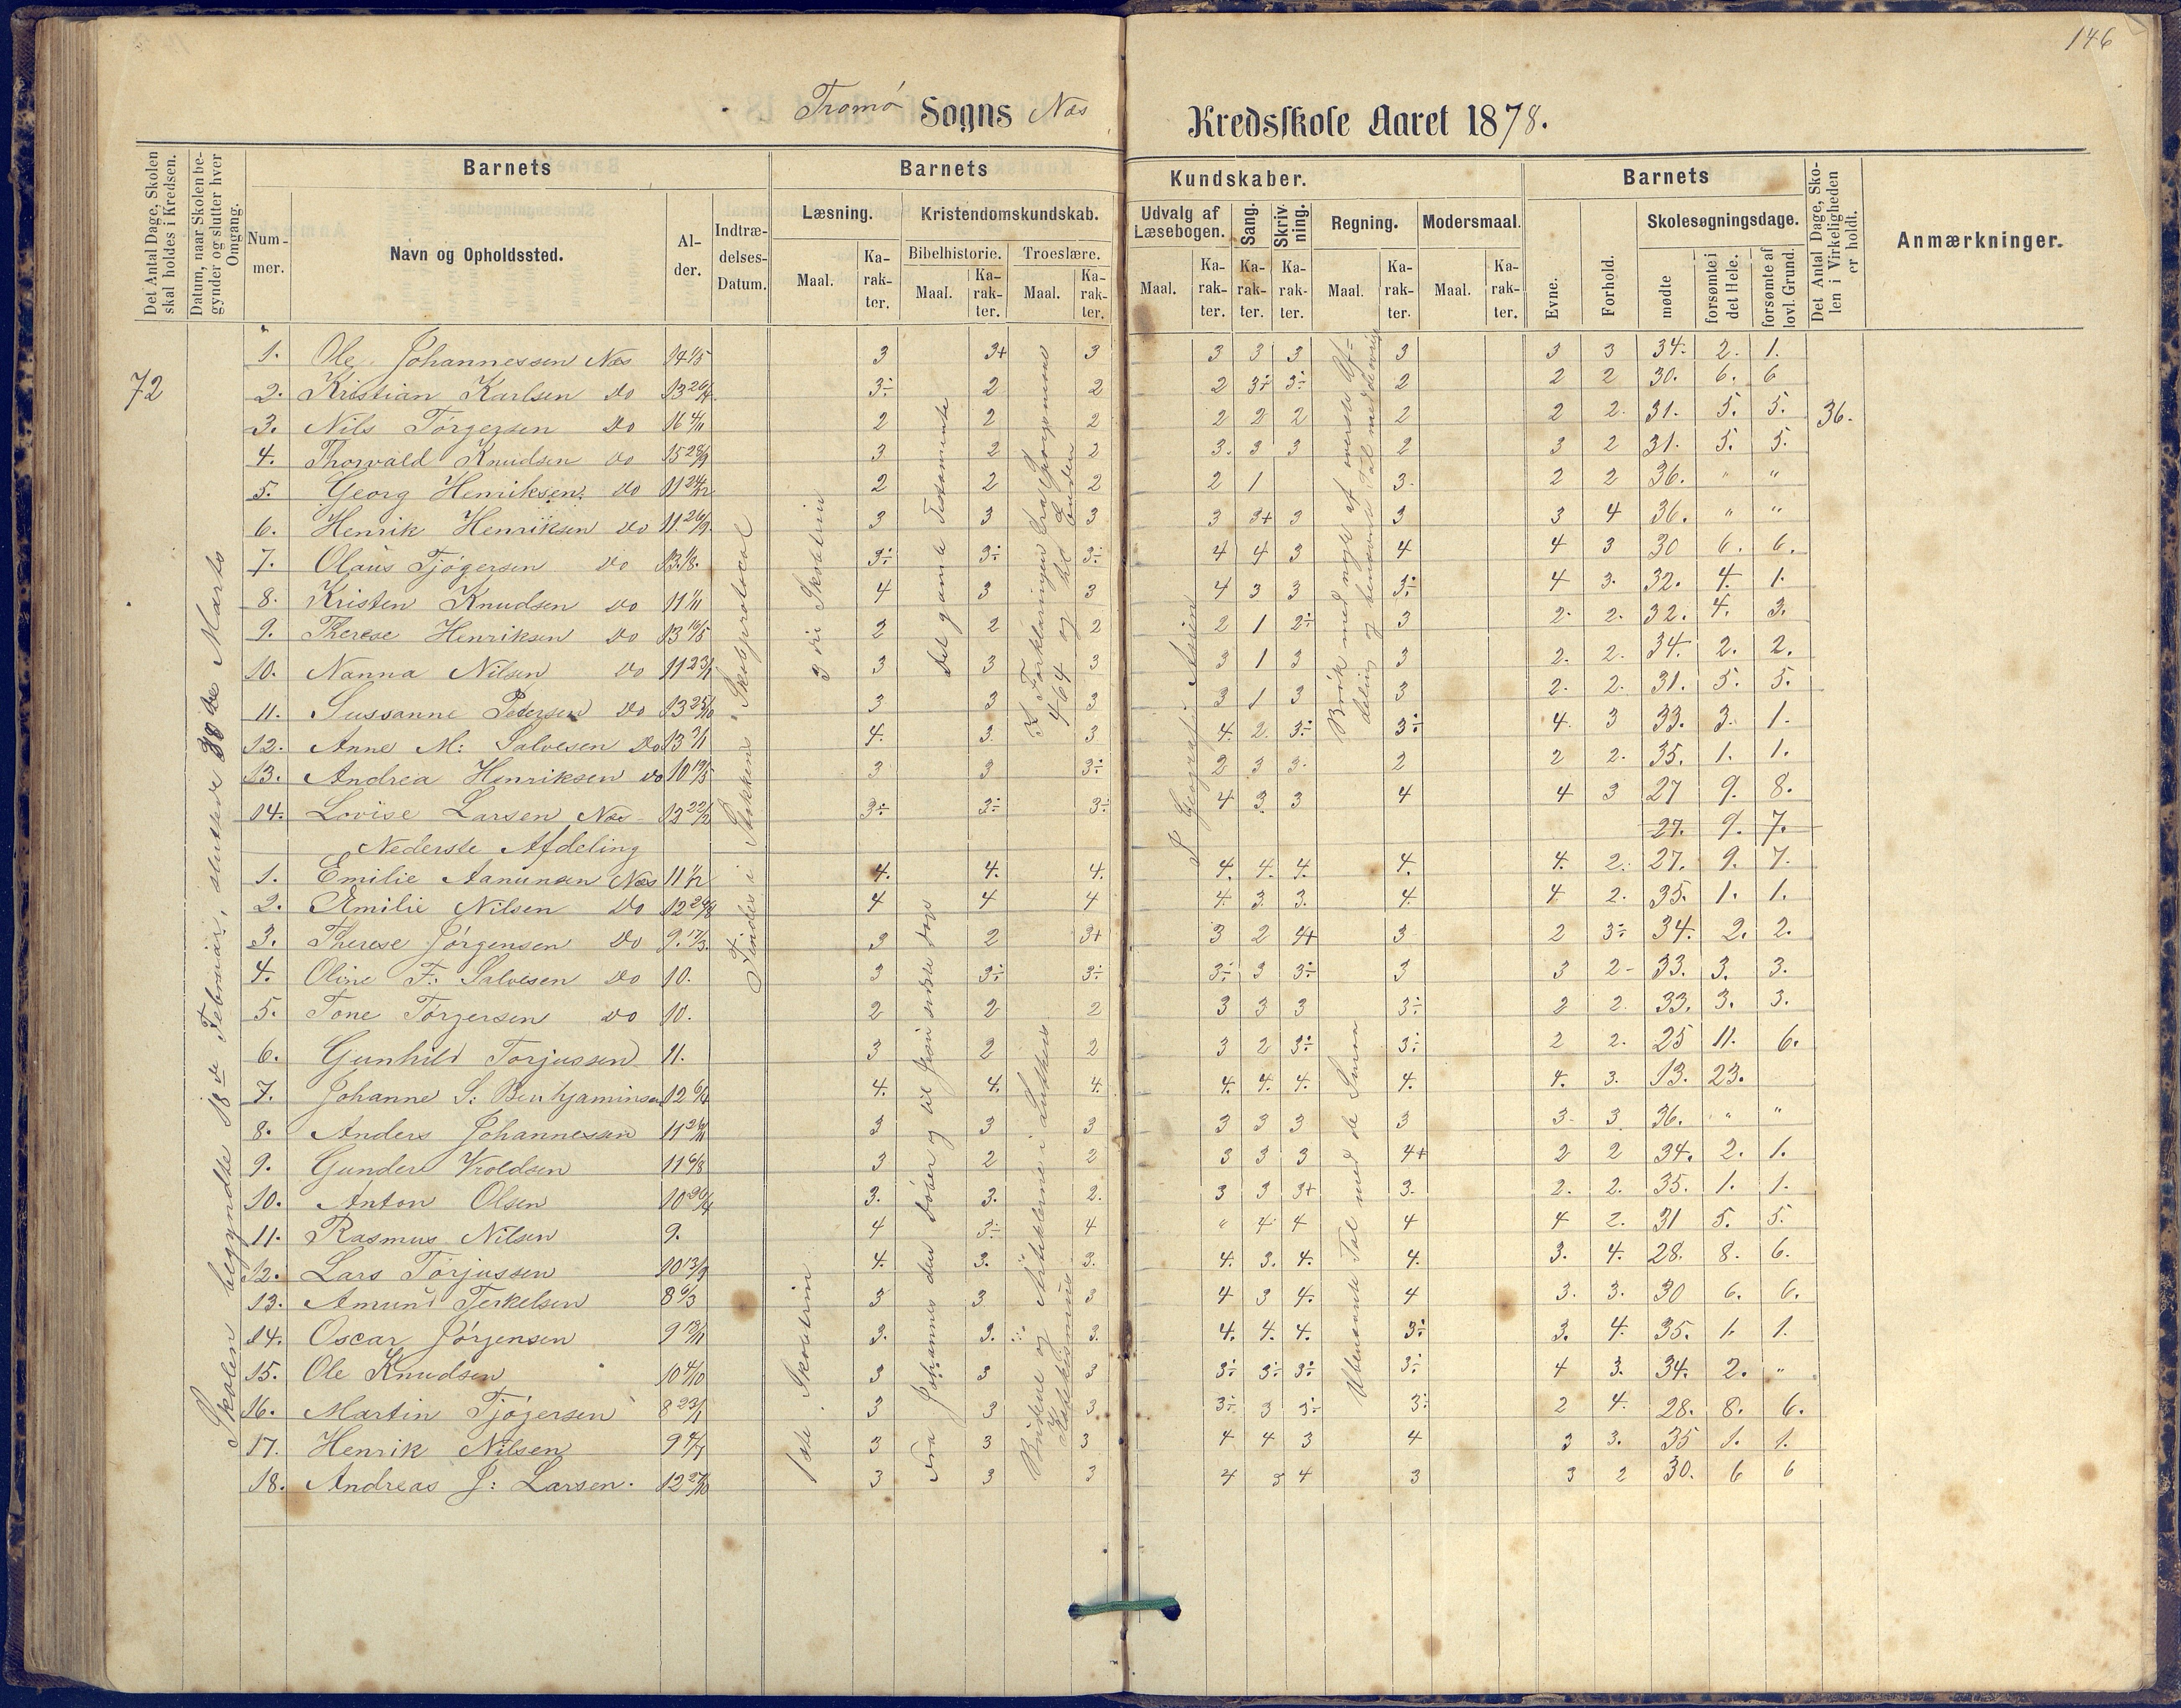 146
Tromø Sogns Næs Kredsskole Aaret 1878.
Det Antal Dage, Skolen skal holdes i Kredsen.
Datum, naar Skolen begynder og slutter hver Omgang.
Barnets
Nummer.
Navn og Opholdssted.
Alder.
Indtrædelses-Datum.
Barnets Kundskaber.
Læsning.
Maal.
Karakter.
Kristendomskundskab.
Bibelhistorie.
Maal.
Karakter.
Troeslære.
Maal.
Karakter.
Udvalg af Læsebogen.
Maal.
Karakter.
Sang.
Karakter.
Skrivning.
Karakter.
Regning.
Maal.
Karakter.
Modersmaal.
Maal.
Karakter.
Barnets
Evne.
Forhold.
Skolesøgningsdage.
mødte
forsømte i det Hele.
forsømte af lovl. Grund.
Det Antal Dage, Skolen i Virkeligheden er holdt.
Anmærkninger.
72
Skolen begyndte 18de Februar, sluttede 30de Marts
Findes i Stokkens Skoleprotocol
3die Skoletrin
Det gamle Testamente
Fra Johannes den Døber og til Jesu sidste Dage
Geografi: Asien
36.
1. Ole Johannessen Næs 14 1/5 3 3+ 3 3 3 3 3 3 3 34. 2. 1.
2. Kristian Karlsen do 13 26/4 3÷ 2 2 2 3÷ 3÷ 2 2 2 30. 6. 6
3. Nils Törgersen do 16 4/11 2 2 2 2 2 2 2 2 2. 31. 5. 5.
4. Thorvald Knudsen do 15 29/9 3 2 2 3. 3 3 2 3 2 31. 5. 5.
5. Georg Henriksen. do 11 24/12 2 2 2 2 1 3. 2 2 36. " "
6. Henrik Henriksen do 11 26/9 3 3 3 3 3+ 3 3 3 4 36. " "
7. Olaus Tjögersen do 13 1/8. 3÷ 3÷ 3÷ 4 4 3 4 4 3 30 6. 6.
8. Kristen Knudsen do 11 1/11 4 3 3 4 3 3 3÷ 4 3. 32. 4. 1.
9. Therese Henriksen do 13 16/5 2 2 2 2 1 2÷ 3 2. 2. 32. 4. 3.
10. Nanna Nilsen do 11 23/1 3 3 3 3 1 3 3 2. 2. 34. 2. 2.
11. Sussanne Pedersen do 13 25/10 3 3 3 3 1 3 3 2. 2. 31. 5. 5.
12. Anne M: Salvesen do 13 3/1 4. 3. 3 4. 2. 3÷ 3÷ 4. 3 33. 3. 1.
13. Andrea Henriksen do 10 13/5 3 3 3÷ 2 3 3. 2 2 2. 35. 1. 1.
14. Lovise Larsen Næs 13 22/12 3÷ 3÷ 3÷ 4 3 3 4 4 3 27 9. 8.
27. 9. 7.
Nederste Afdeling
1. Emilie Aanunsen Næs 11 1/12 4. 4. 4. 4. 4. 4. 4. 4. 2. 27. 9. 7.
2. Emilie Nilsen do 12 24/8 4 4 4 4. 3. 3. 4. 4 2. 35. 1. 1.
3. Therese Jörgensen do 9. 17/3. 3 2 3+ 3 2 4+ 3 2 3÷ 34. 2. 2.
4. Oline F: Salvesen do 10. 3 3÷ 3÷ 3÷ 3 3÷ 3 3 2- 33. 3. 3.
5. Tone Törgersen do 10. 2 2 2 3 3 3 3÷ 2 2. 33. 3. 3.
6. Gunhild Torjussen 11. 3 2 2 3 2 3÷ 3÷ 2 2. 25 11. 6.
7. Johanne S: Benhjaminsen 12 6/4 4. 4. 4. 4. 4. 4. 4. 4. 3. 13. 23.
8. Anders Johannessen 11 26/11 3 3 3 3 3 3 3 3. 3 36. " "
9. Gunder Voldsen 11 6/8 3 2 2 3 3 3 4+ 2 2 34. 2. 1.
10. Anton Olsen 10 30/4 3. 3. 2. 3 3 3+ 3. 2. 2. 35. 1. 1.
11. Rasmus Nilsen 9. 4 3÷ 4 " 4 4 4 4 2. 31 5. 5.
12. Lars Torjussen 10 13/9 4. 3. 3. 4. 3. 4. 4. 3. 4. 28. 8. 6.
13. Amund Terkelsen 8 6/3 3 3 3 4 3 4. 4 3. 3. 30 6. 6.
14. Oscar Jörgensen 9 13/11 3. 3. 3. 4. 4. 4. 3÷ 3. 4. 35. 1. 1.
15. Ole Knudsen 10 4/10 3 3 3 3÷ 3÷ 3÷ 3÷ 4 3. 34. 2. "
16. Martin Tjögersen 8 23/1 3 3 3 3÷ 3 3÷ 3÷ 2 4. 28. 8. 6.
17. Henrik Nilsen 9 4/7 3 3 3 4 4 3 4 3 3. 35 1. 1.
18. Andreas J: Larsen. 12 27/10 3 3 3 4 3 4 3 3 2 30. 6 6
1ste Skoletrin
Ubenævnte Tal med de